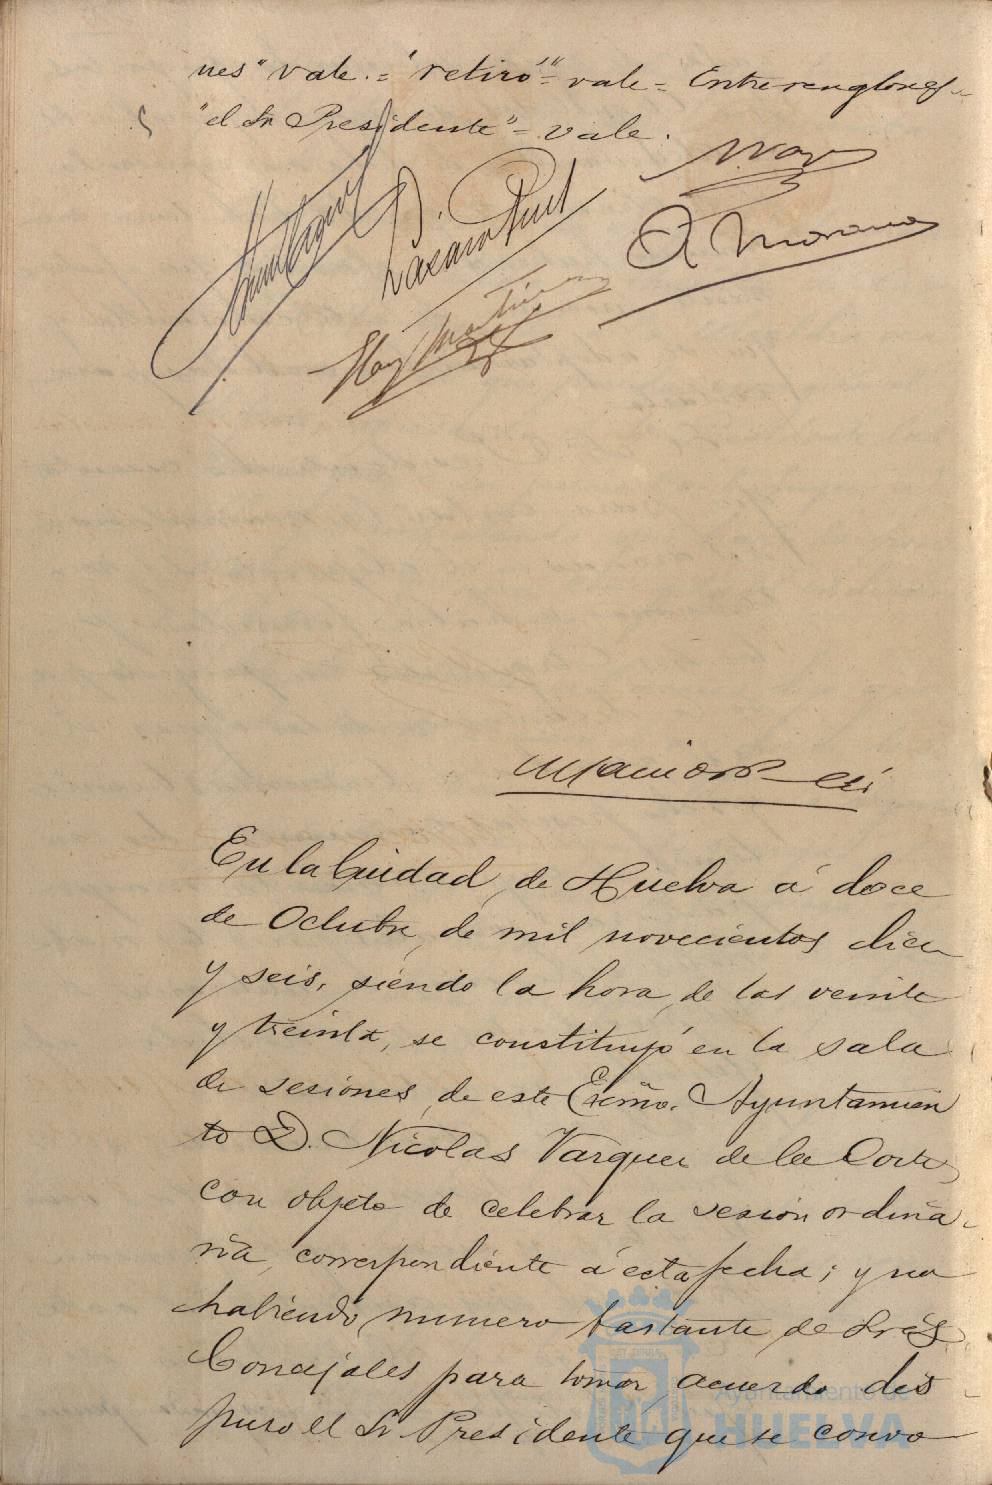 nes" vale.= "retiró"= vale = Entrerenglones=
"el Sr Presidente"= vale.
A Moreno
En la Ciudad de Huelva á doce
de Octubre de mil novecientos diez
y seis, siendo la hora de las veinte
y treinta, se constituyó en la sala
de sesiones de este Excmo. Ayuntamien
to D. Nicolas Vazquez de la Corte,
con objeto de celebrar la sesion ordina-
ria, correspondiente á esta fecha; y no
habiendo numero bastante de Sres
Concejales para tomar acuerdo dis-
puso el Sr Presidente que se convo
Ayuntamiento de
HUELVA